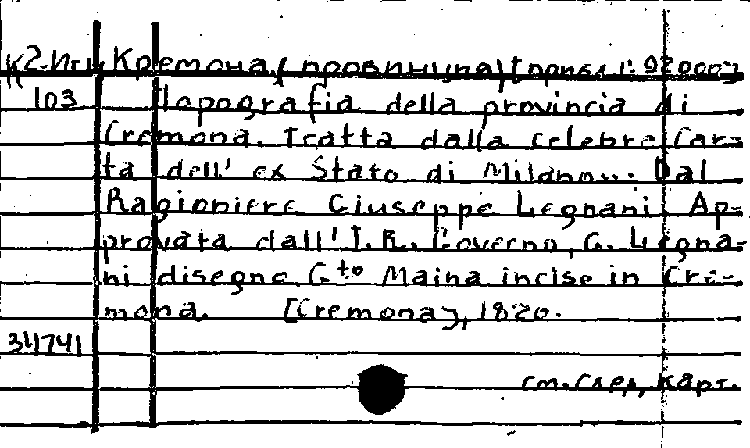 К2-Ит Кремона (провинция) [прибл. 1:92000]
103 Topografia della provincia di
Cremona. Tratta dalla celebre Car-
ta dell' ex Stato di Milano... Dal
Ragioniere Giuseppe Legnani. Ap-
provata dall' I. R. Governo, G. Legna-
ni disegno. G^to Maina incise in Cre-
mona. [Cremona], 1820.
34741
см. след. карт.